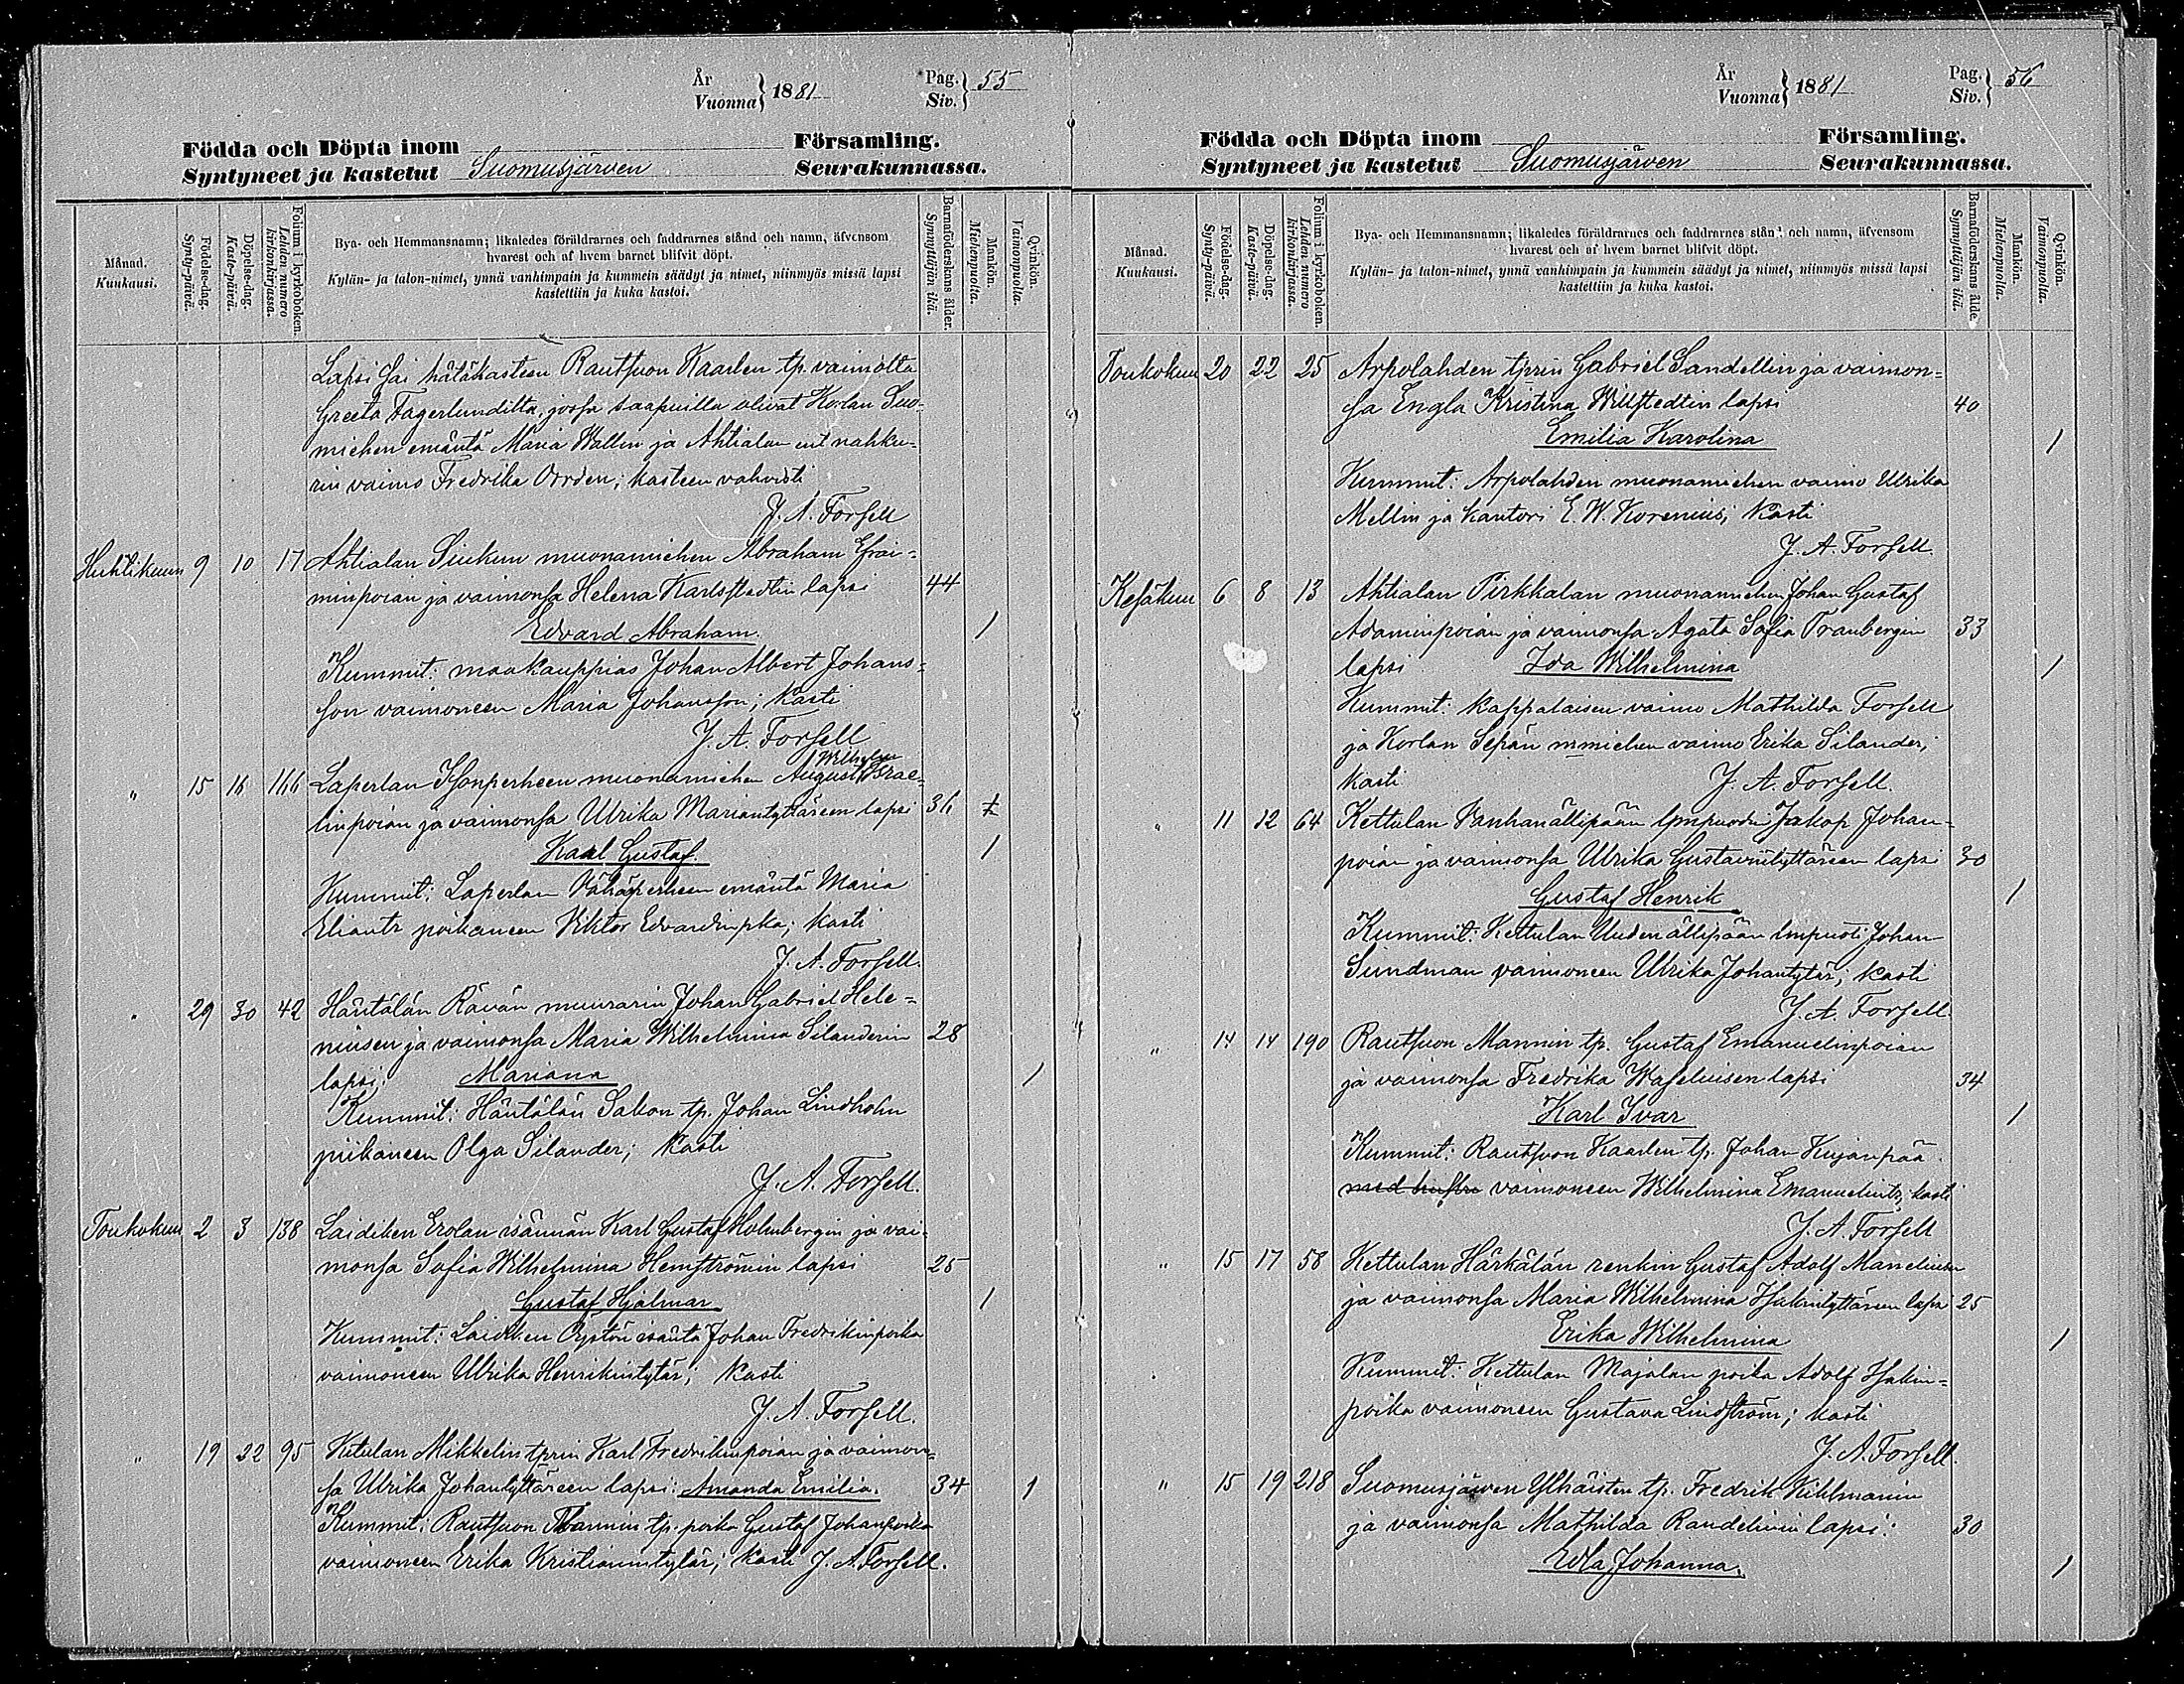 År
Vuonna 1881
Pag.
Siv. 55
Födda och Döpta inom Församling.
Syntyneet ja kastetut Suomusjärven Seurakunnassa.
Månad.
Kuukausi.
Födelse-dag.
Synty-päivä.
Döpelse-dag.
Kaste-päivä.
Folium i kyrkoboken.
Lehden numero kirkonkirjassa.
Bya- och Hemmansnamn; likaledes föräldrarnes och faddrarnes stånd och namn, äfvensom
hvarest och af hvem barnet blifvit döpt.
Kylän- ja talon-nimet, ynnä vanhimpain ja kummein säädyt ja nimet, niinmyös missä lapsi
kastettiin ja kuka kastoi.
Barnaföderskans ålder.
Synnyttäjän ikä.
Mankön.
Miehenpuolta.
Qvinkön.
Vaimonpuolta.
Lapsi sai hätäkasteen Rautsuon Kaarlen tp. vaimolta
Greeta Fagerlundilta, jossa saapuilla olivat Korlan Suo-
miehen emäntä Maria Wallin ja Ahtialan nahku-
rin vaimo Fredrika Orrden; kasteen vahvisti
J. A. Forsell
Huhtikuun 9 10 17 Ahtialan Siukun muonamiehen Abraham Efrai-
minpoian ja vaimonsa Helena Karlstedtin lapsi 44
Edvard Abraham. 1
Kummit: maakauppias Johan Albert Johans-
son vaimoneen Maria Johansson; Kasti
J. A. Forsell
Wilhelm
" 15 16 166 Laperlan Isonperheen muonamiehen August Israe-
linpoian ja vaimonsa Ulrika Mariantyttäreen lapsi 36
Kaal Gustaf. 1
Kummit: Laperlan Vähäperheen emäntä Maria
Eliantr poikaneen Viktor Edvardinpka; Kasti
J. A. Forsell.
" 29 30 42 Häntälän Rävän muurarin Johan Gabriel Hele-
niusen ja vaimonsa Maria Wilhelmina Silanderin 28
lapsi: Mariana 1
Kummit: Häntälän Sakon tp. Johan Lindholm
piikaneen Olga Silander; Kasti
J. A. Forsell.
Toukokuu 2 3 138 Laidiken Erolan isännän Karl Gustaf Holmbergin ja vai-
monsa Sofia Wilhelmina Hemströmin lapsi 25
Gustaf Hjalmar 1
Kummit: Laidiken isäntä Johan Fredrikinpoika
vaimoneen Ulrika Henrikintytär; Kasti
J. A. Forsell.
" 19 22 95 Kitulan Mikkelin tprin Karl Fredrikinpoian ja vaimon-
sa Ulrika Johantyttäreen lapsi: Amanda Emilia. 34 1
Kummit: Rautsuon Mannin tp. poika Gustaf Johanpoika
vaimoneen Erika Kristianintytär; Kasti J. A. Forsell.
År
Vuonna 1881
Pag.
Siv. 56
Födda och Döpta inom Församling.
Syntyneet ja kastetut Suomusjärven Seurakunnassa.
Månad.
Kuukausi.
Födelse-dag.
Synty-päivä.
Döpelse-dag.
Kaste-päivä.
Folium i kyrkoboken.
Lehden numero kirkonkirjassa.
Bya- och Hemmansnamn; likaledes föräldrarnes och faddrarnes stånd och namn, äfvensom
hvarest och af hvem barnet blifvit döpt.
Kylän- ja talon-nimet, ynnä vanhimpain ja kummein säädyt ja nimet, niinmyös missä lapsi
kastettiin ja kuka kastoi.
Barnaföderskans ålde
Synnyttäjän ikä.
Mankön.
Miehenpuolta.
Qvinkön.
Vaimonpuolta.
Toukokuu 20 22 25 Arpolahden tprin Gabriel Sandellin ja vaimon-
sa Engla Kristina Willstedtin lapsi 40
Emilia Karolina 1
Kummit: Arpolahden muonamiehen vaimo Ulrika
Mellin ja kantori E. W. Korenius; Kasti
J. A. Forsell.
Kesäkuu 6 8 13 Ahtialan Pirkkalan muonamiehen Johan Gustaf
Adaminpoian ja vaimonsa Agata Sofia Tranbergin 33
lapsi Ida Wilhelmina 1
Kummit: Kappalaisen vaimo Mathilda Forsell
ja Korlan Sepän mmiehen vaimo Erika Silander;
Kasti J. A. Forsell.
" 11 12 64 Kettulan Vanhanällipään Jakop Johan-
poian ja vaimonsa Ulrika Gustavintyttäreen lapsi 30
Gustaf Henrik 1
Kummit: Kettulan Uuden ällipään Johan
Sundman vaimoneen Ulrika Johantytär; Kasti
J. A. Forsell.
" 14 14 190 Rautsuon Mannin tp. Gustaf Emanuelinpoian
ja vaimonsa Fredrika Waseliusen lapsi 34
Karl Ivar 1
Kummit: Rautsuon Kaarlen tp. Johan Kujanpää
med hustru vaimoneen Wilhelmina Emanuelintr; kasti
J. A. Forsell
" 15 17 58 Kettulan Härkälän renkin Gustaf Adolf Maneliusen
ja vaimonsa Maria Wilhelmina Isakintyttäreen lapsi 25
Erika Wilhelmina 1
Kummit: Kettulan Majalan poika Adolf Isakin-
poika vaimoneen Gustava Lindström; kasti
J. A. Forsell.
" 15 19 218 Suomusjärven Ylhäisten tp. Fredrik Kihlmanin
ja vaimonsa Mathilda Randelinin lapsi: 30
Edla Johanna. 1